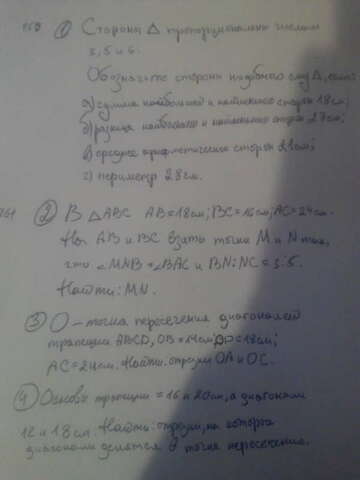 159 ① Стороны Δ пропорциональны числам
3, 5 и 6.
стороны подобного ему Δ, если:
а) сумма наибольшей и наименьшей сторон 18 см;
б) разница наибольшей и наименьшей сторон 27 см;
в) среднее арифметическое сторон 21 см;
г) периметр 28 см.
161 ② В ΔABC AB=18см; BC=16см; AC=24см.
На AB и BC взяты точки M и N так,
что ∠MNB=∠BAC и BN:NC=3:5.
Найти: MN.
③ O – точка пересечения диагоналей
трапеции ABCD, OB=14см =18см;
AC=24см. Найти: отрезки OA и OC.
④ трапеции = 16 и 20см, а диагонали
12 и 18см. Найти: отрезки, на которые
диагонали делятся точкой пересечения.